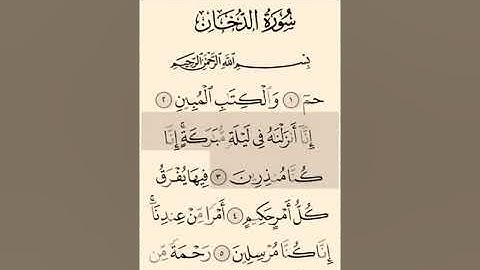 سُورَةُ الدُّخَانِ
بِسْمِ ٱللَّهِ ٱلرَّحْمَٰنِ ٱلرَّحِيمِ
حمٓ ١ وَٱلْكِتَٰبِ ٱلْمُبِينِ ٢
إِنَّآ أَنزَلْنَٰهُ فِى لَيْلَةٍ مُّبَٰرَكَةٍ ۚ إِنَّا
كُنَّا مُنذِرِينَ ٣ فِيهَا يُفْرَقُ
كُلُّ أَمْرٍ حَكِيمٍ ٤ أَمْرًا مِّنْ عِندِنَآ ۚ
إِنَّا كُنَّا مُرْسِلِينَ ٥ رَحْمَةً مِّن